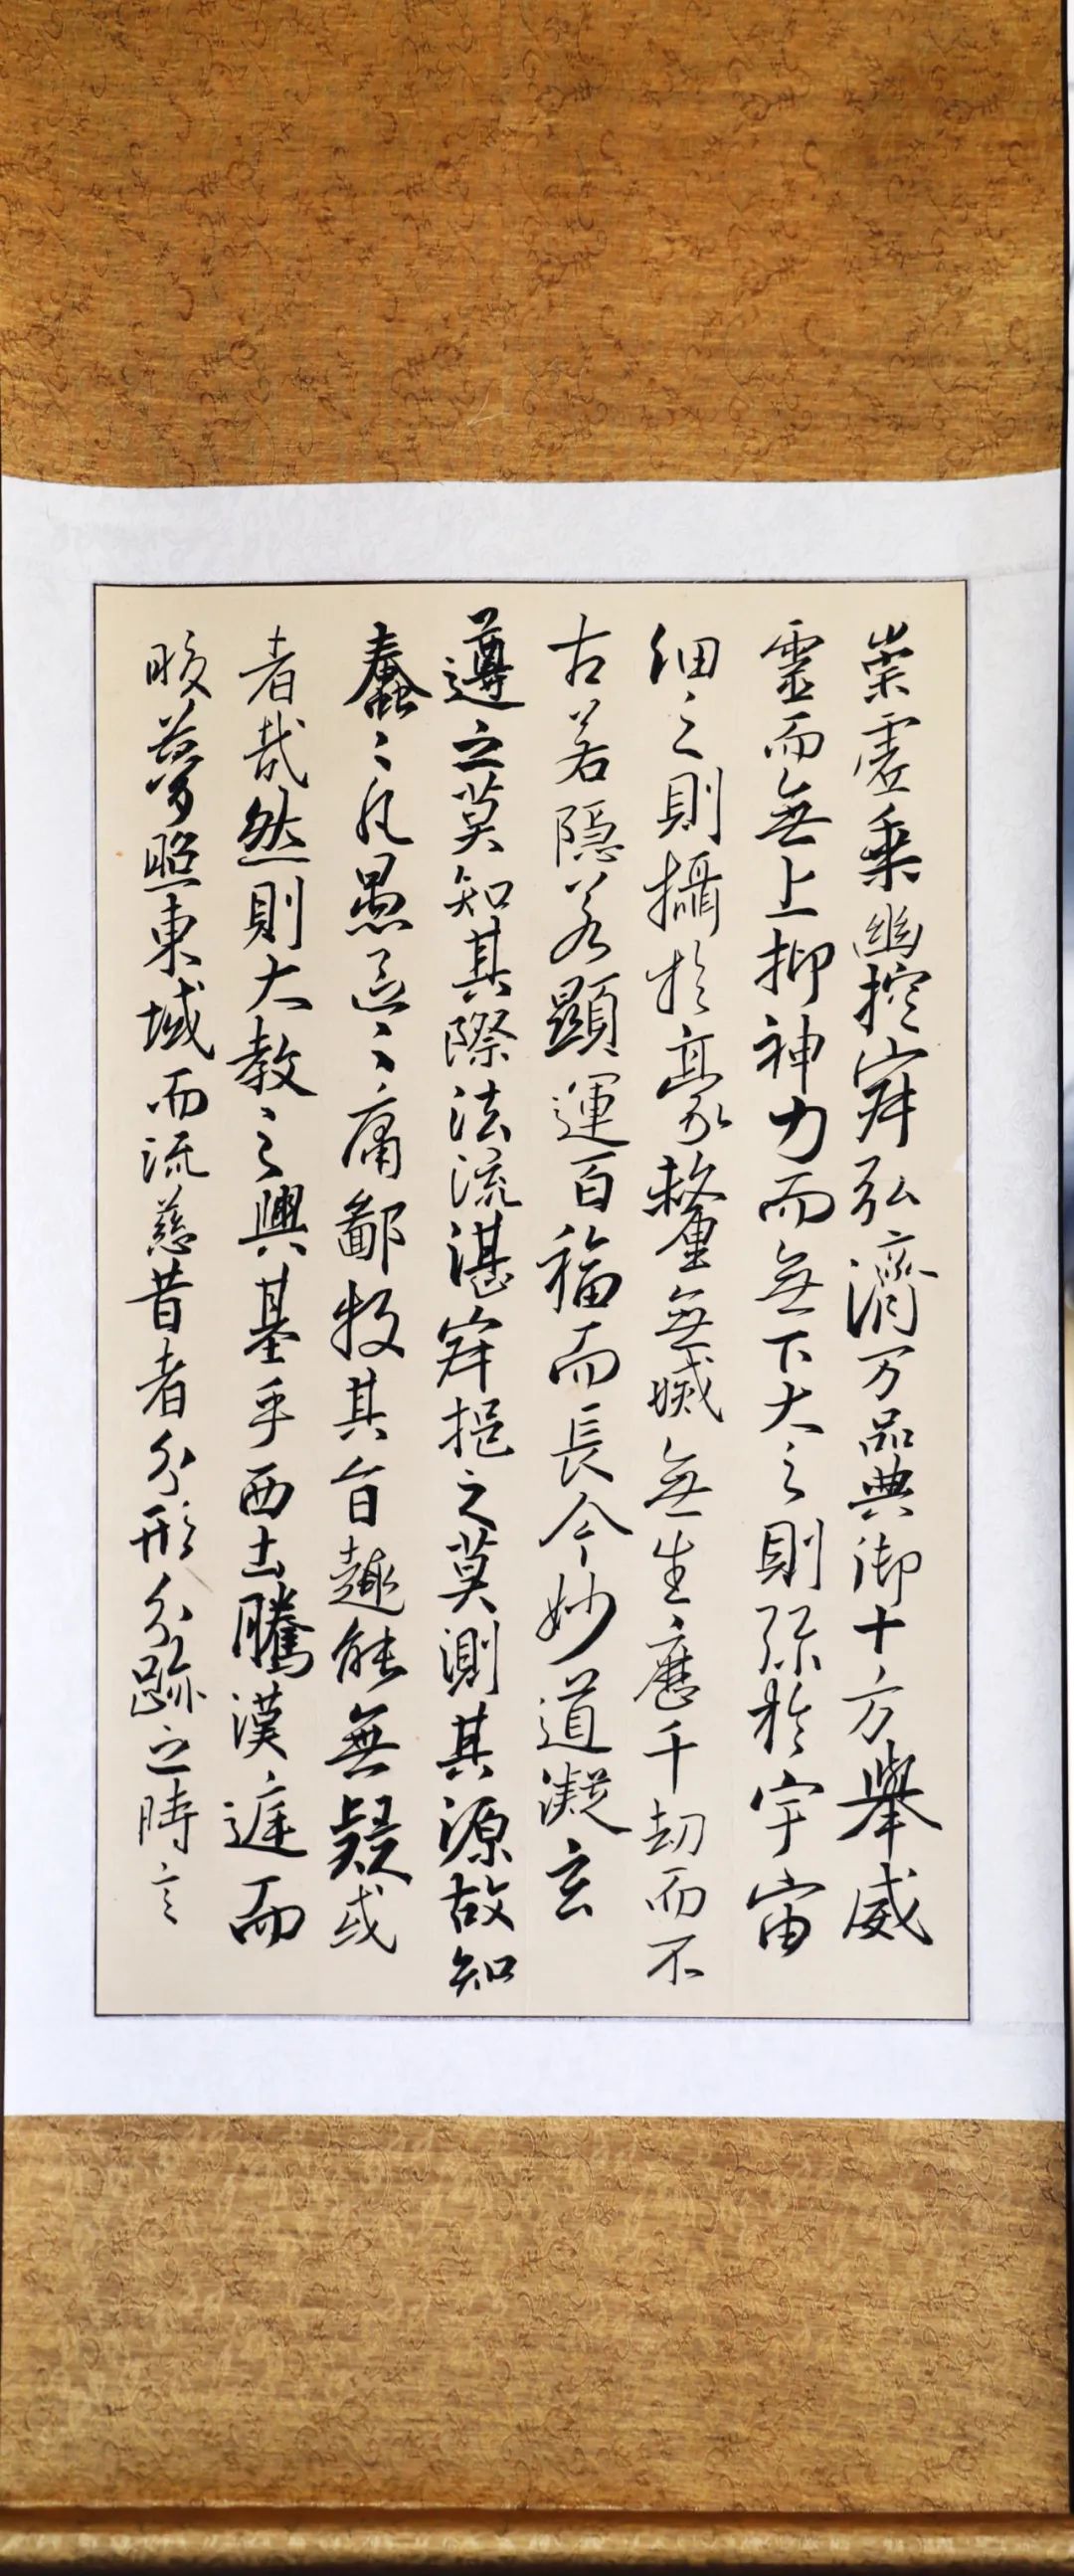 崇虚乘幽控寂弘濟万品典御十方舉威
靈而無上抑神力而無下大之則弥於宇宙
細之則攝於豪釐無滅無生歷千劫而不
古若隱若顯運百福而長今妙道凝玄
遵之莫知其際法流湛寂挹之莫測其源故知
蠢〻凡愚區〻庸鄙投其旨趣能無疑或
者哉然則大教之興基乎西土騰漢庭而
晈夢照東域而流慈昔者分形分跡之時言